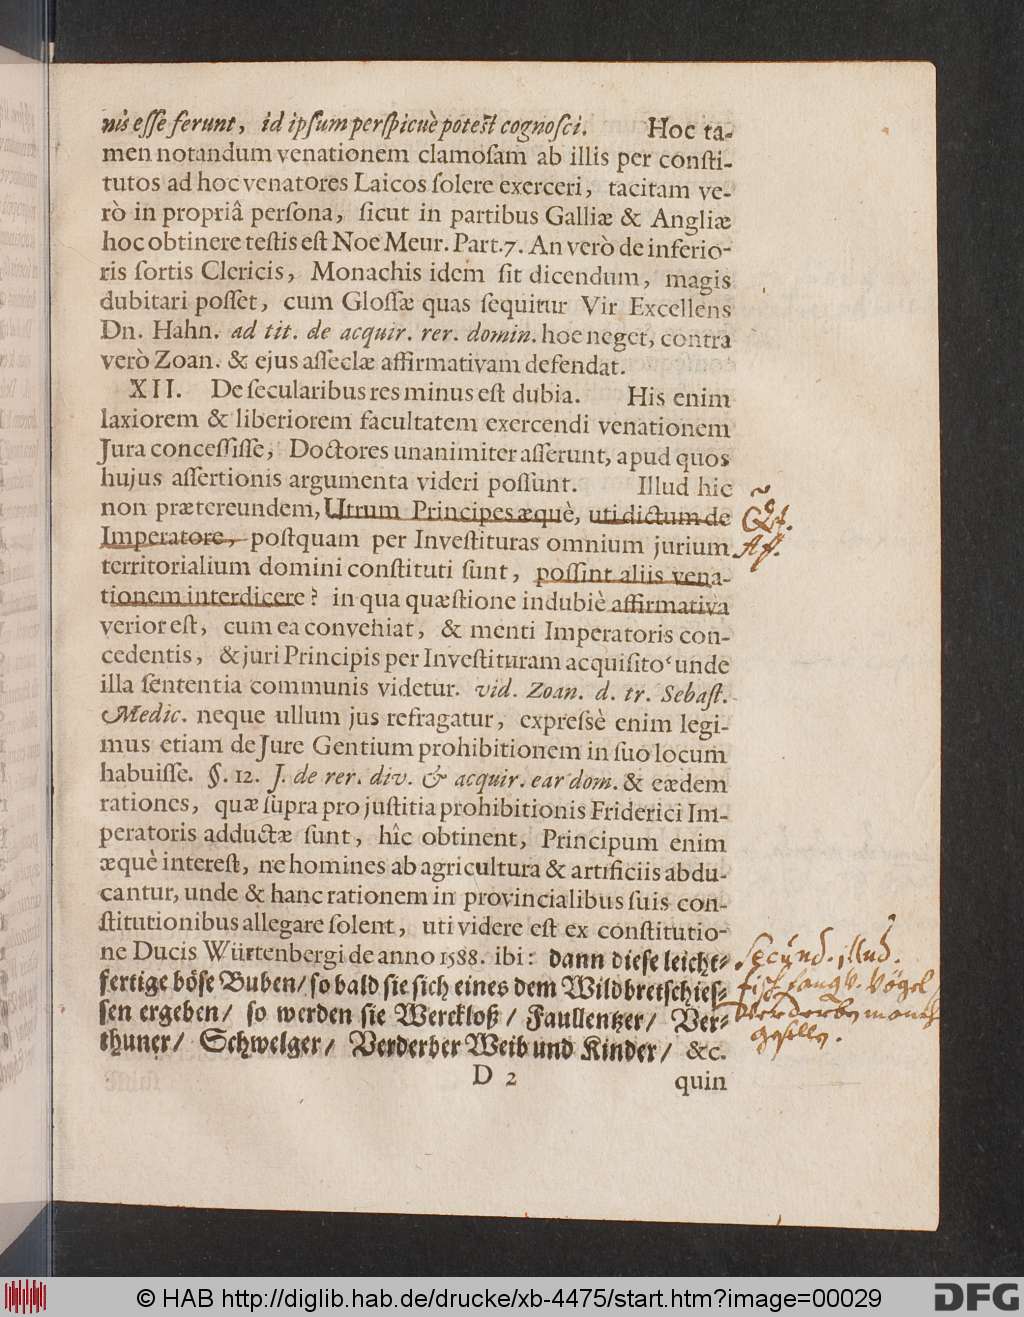 nis eſſe ferunt, id ipſum perſpicuè poteſt cognoſci. Hoc ta-
men notandum venationem clamoſam ab illis per conſti-
tutos ad hoc venatores Laicos ſolere exerceri, tacitam ve-
rò in propriâ perſona, ſicut in partibus Galliæ & Angliæ
hoc obtinere teſtis eſt Noe Meur. Part. 7. An verò de inferio-
ris ſortis Clericis, Monachis idem ſit dicendum, magis
dubitari poſſet, cum Gloſſæ quas ſequitur Vir Excellens
Dn. Hahn. ad tit. de acquir. rer. domin. hoc neget, contra
verò Zoan. & ejus aſſeclæ affirmativam defendat.
XII. De ſecularibus res minus eſt dubia. His enim
laxiorem & liberiorem facultatem exercendi venationem
Jura conceſſiſſe, Doctores unanimiter aſſerunt, apud quos
hujus aſſertionis argumenta videri poſſunt. Illud hic
non prætereundem, Utrum Principes æquè, uti dictum de
Qſt.
Imperatore, poſtquam per Inveſtituras omnium jurium
Aff.
territorialium domini conſtituti ſunt, poſſint aliis vena-
tionem interdicere? in qua quæſtione indubiè affirmativa
verior eſt, cum ea conveniat, & menti Imperatoris con-
cedentis, & juri Principis per Inveſtituram acquiſito: unde
illa ſententia communis videtur. vid. Zoan. d. tr. Sebaſt.
Medic. neque ullum jus refragatur, expreſsè enim legi-
mus etiam de Jure Gentium prohibitionem in ſuo locum
habuiſſe. §. 12. J. de rer. div. & acquir. ear dom. & eædem
rationes, quæ ſupra pro juſtitia prohibitionis Friderici Im-
peratoris adductæ ſunt, hîc obtinent, Principum enim
æquè intereſt, ne homines ab agricultura & artificiis abdu-
cantur, unde & hanc rationem in provincialibus ſuis con-
ſtitutionibus allegare ſolent, uti videre eſt ex conſtitutio-
ne Ducis Würtenbergi de anno 1588. ibi: dann dieſe leicht-
fertige böſe Buben/ ſo bald ſie ſich eines dem Wildbretſchieſ-
ſen ergeben/ ſo werden ſie Werckloß/ Faullentzer/ Ver-
thuner/ Schwelger/ Verderber Weib und Kinder/ &c.
Secund. illud.
fiſchfang v. Vögel
Verderben manch
geſellen.
D 2 quin
© HAB http://diglib.hab.de/drucke/xb-4475/start.htm?image=00029
DFG